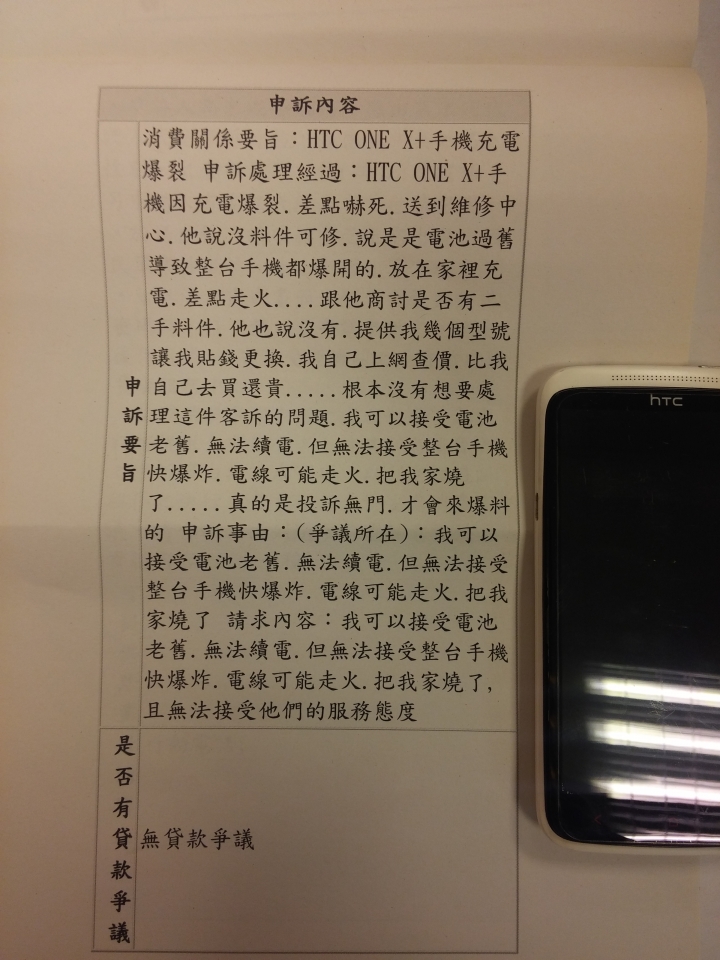 申訴內容
申訴要旨
消費關係要旨：HTC ONE X+手機充電
爆裂 申訴處理經過：HTC ONE X+手
機因充電爆裂.差點嚇死.送到維修中
心.他說沒料件可修.說是是電池過舊
導致整台手機都爆開的.放在家裡充
電.差點走火....跟他商討是否有二
手料件.他也說沒有.提供我幾個型號
讓我貼錢更換.我自己上網查價.比我
自己去買還貴.....根本沒有想要處
理這件客訴的問題.我可以接受電池
老舊.無法續電.但無法接受整台手機
快爆炸.電線可能走火.把我家燒
了.....真的是投訴無門.才會來爆料
的 申訴事由：(爭議所在)：我可以
接受電池老舊.無法續電.但無法接受
整台手機快爆炸.電線可能走火.把我
家燒了 請求內容：我可以接受電池
老舊.無法續電.但無法接受整台手機
快爆炸.電線可能走火.把我家燒了,
且無法接受他們的服務態度
是否有貸款爭議
無貸款爭議
hTC